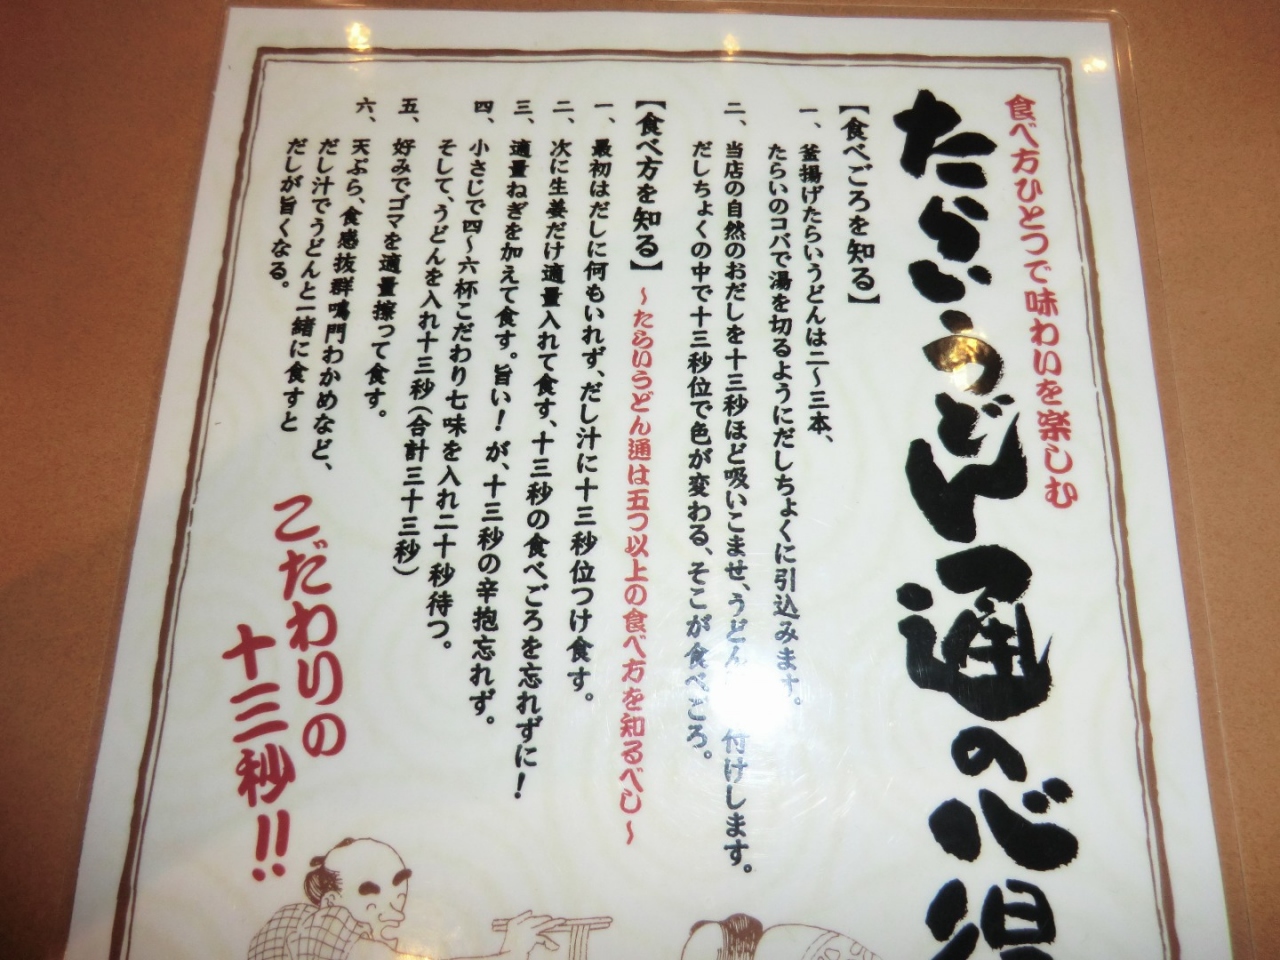 食べ方ひとつで味わいを楽しむ
たらいうどん通の心得
【食べごろを知る】
一、釜揚げたらいうどんは二〜三本、
たらいのコバで湯を切るようにだしちょくに引込みます。
二、当店の自然のおだしを十三秒ほど吸いこませ、うどん 付けします。
だしちょくの中で十三秒位で色が変わる、そこが食べごろ。
【食べ方を知る】〜たらいうどん通は五つ以上の食べ方を知るべし〜
一、最初はだしに何もいれず、だし汁に十三秒位つけ食す。
二、次に生姜だけ適量入れて食す、十三秒の食べごろを忘れずに!
三、適量ねぎを加えて食す。旨い!が、十三秒の辛抱忘れず。
四、小さじで四〜六杯こだわり七味を入れ二十秒待つ。
そして、うどんを入れ十三秒(合計三十三秒)
五、好みでゴマを適量擦って食す。
六、天ぷら、食感抜群鳴門わかめなど、
だし汁でうどんと一緒に食すと
だしが旨くなる。
こだわりの
十三秒!!